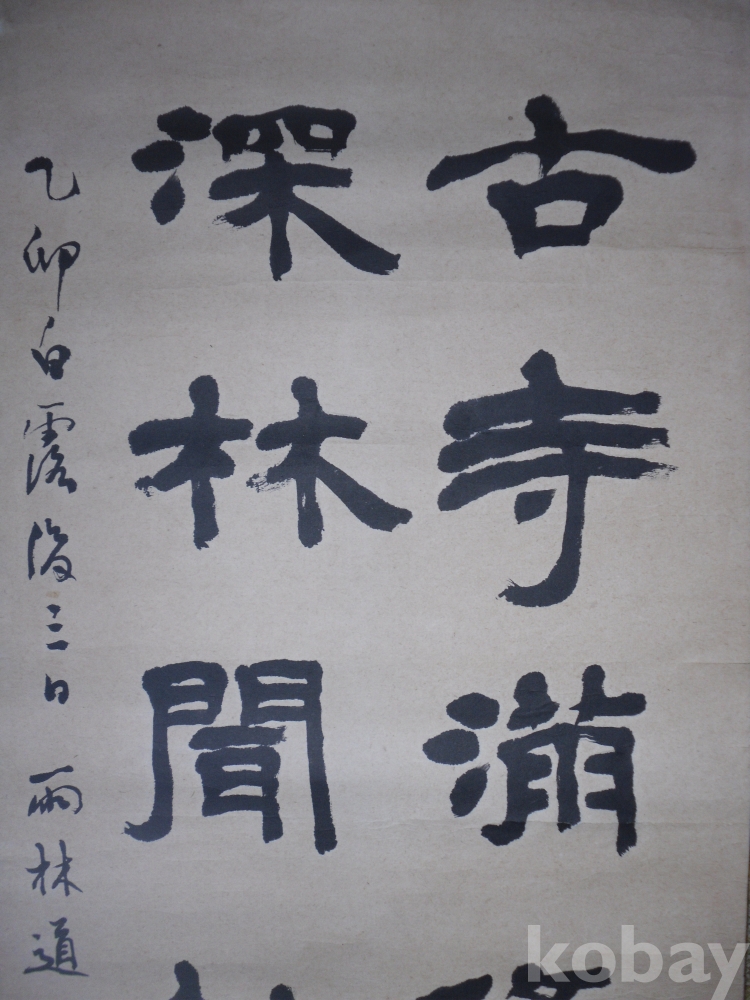 古寺滿
深林聞
乙卯白露後三日 雨林道
kobay